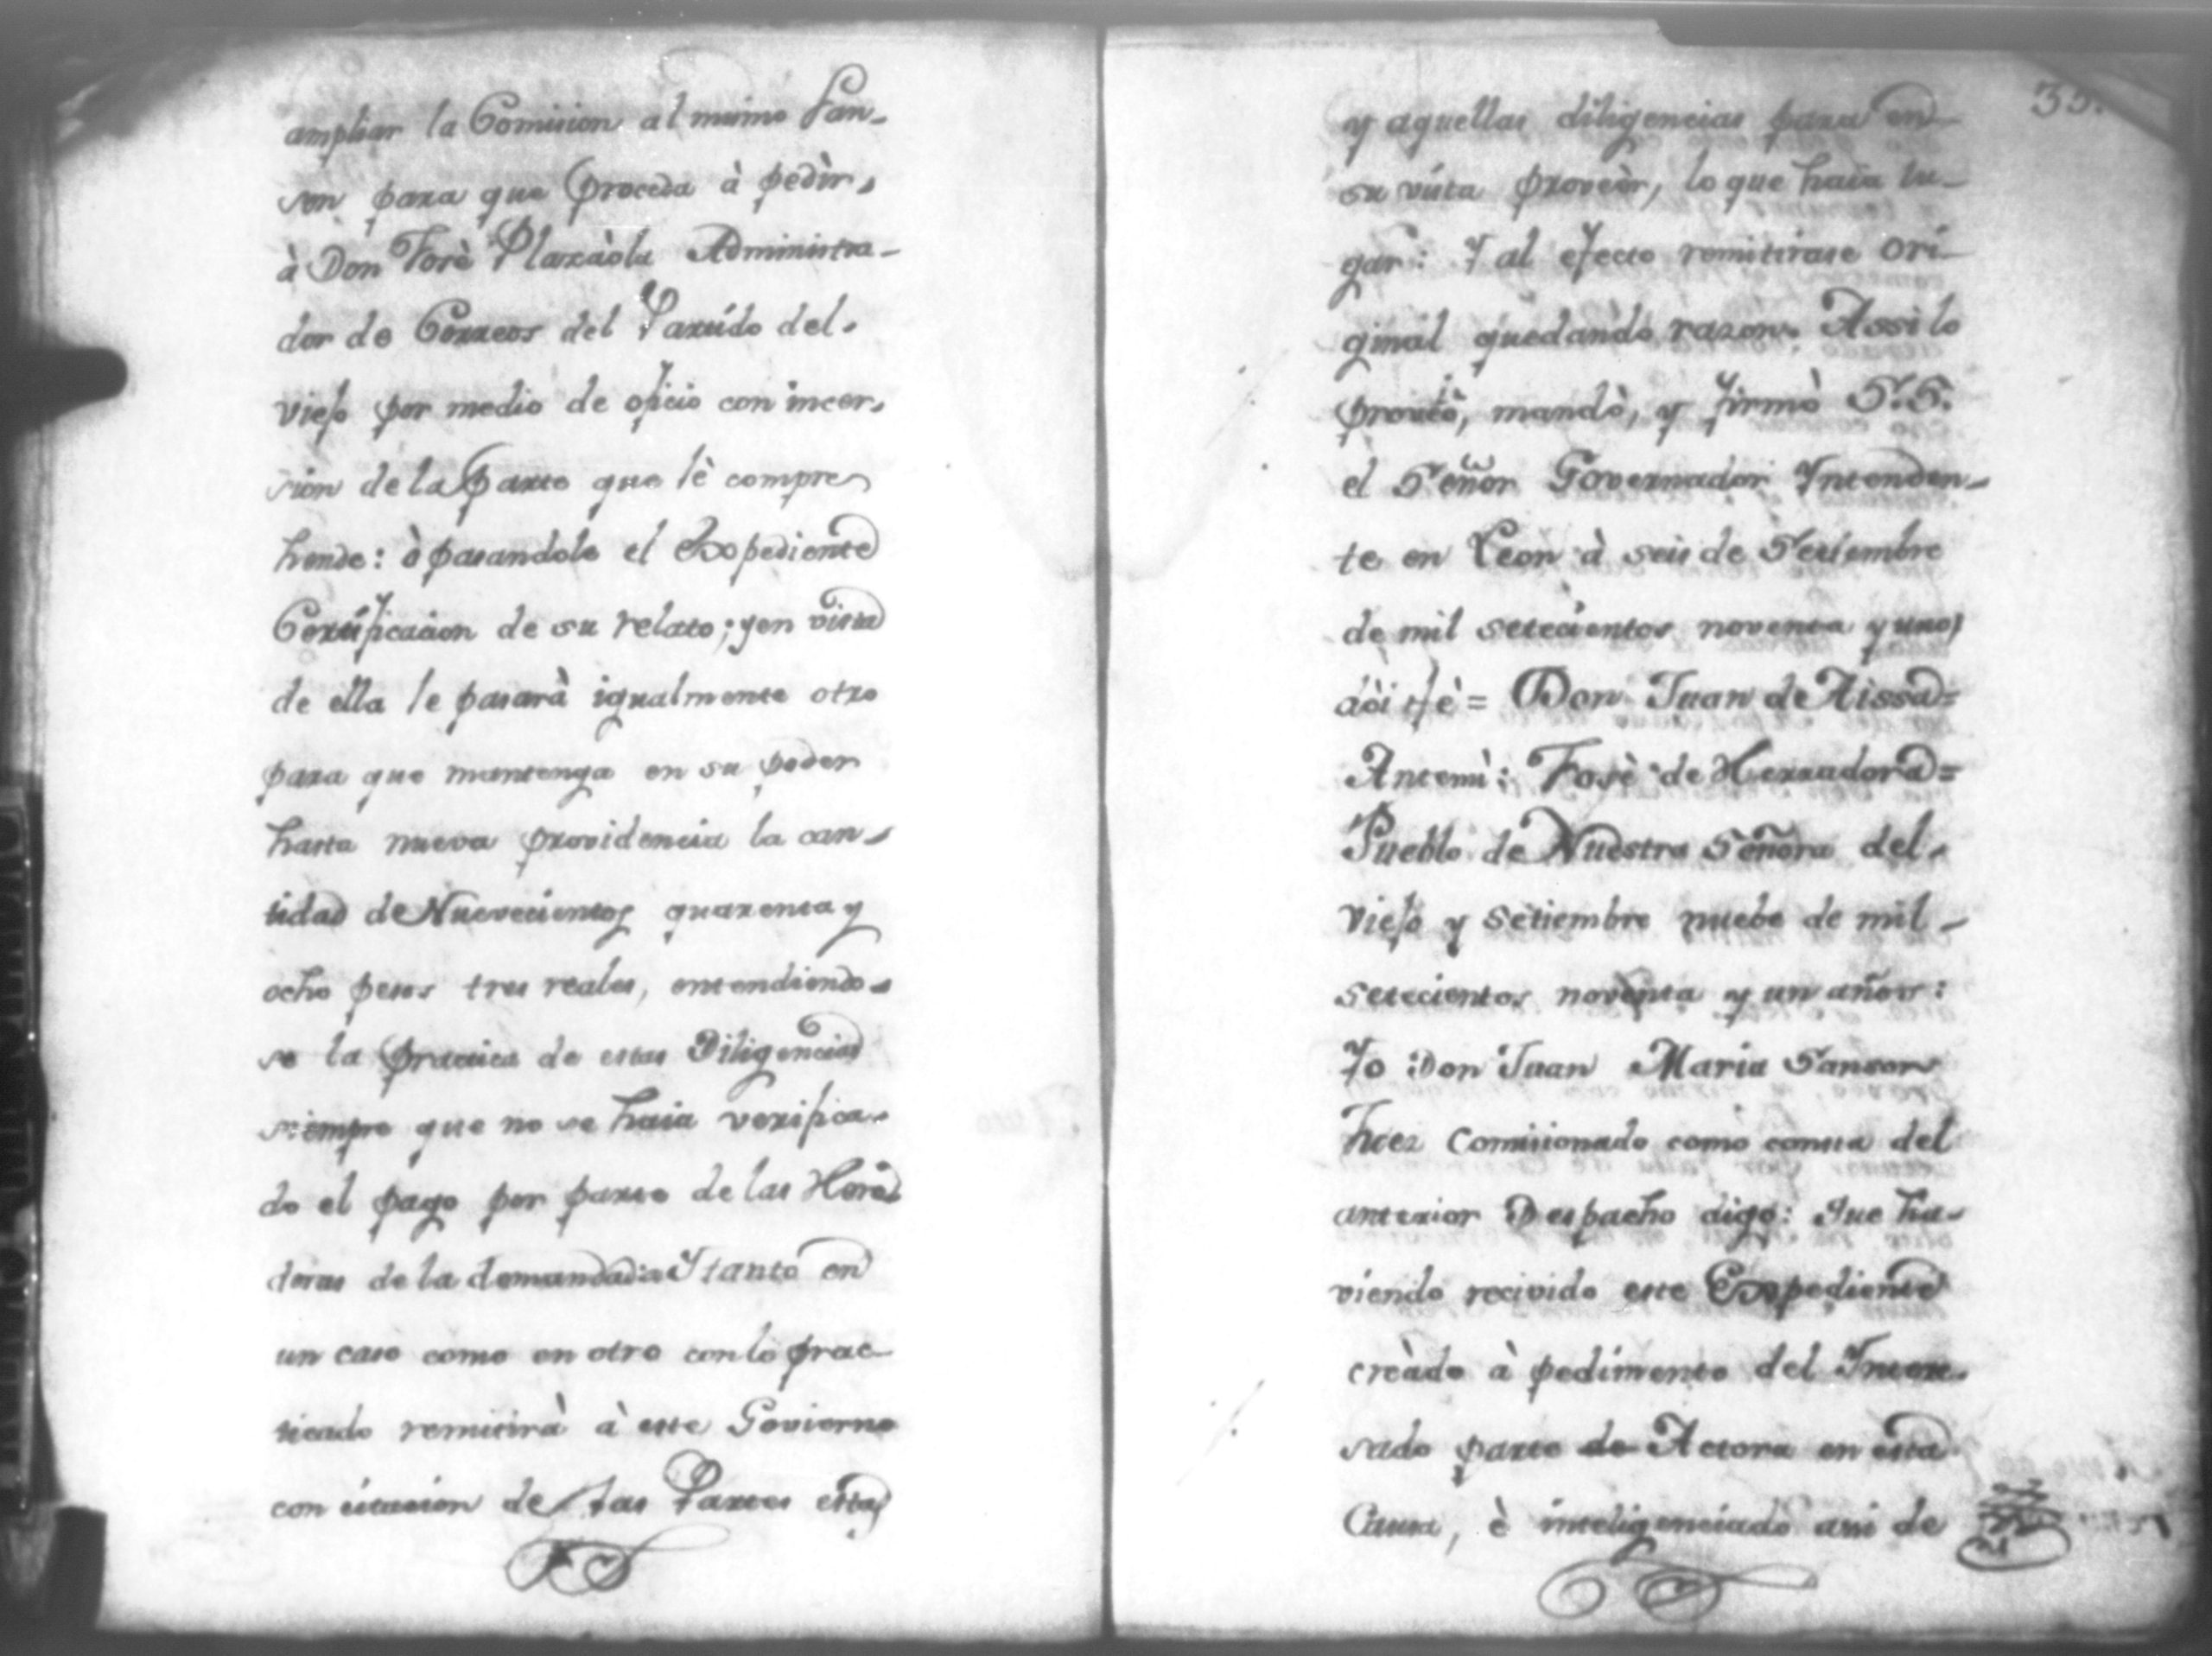 ampliar la Comision al mismo San-
son para que proceda à pedir,
à Don Josè Plazaòla Administra-
dor de Correos del Partido del
viejo por medio de oficio con incer,
sion de la parte que lè compre
hende: ò pasandole el Expediente
Certificacion de su relato; y en vista
de ella le pasarà igualmente otro
para que mantenga en su poder
hasta nueva providencia la can-
tidad de Nuevecientos quarenta y
ocho pesos tres reales, entendiendo-
se la practica de estas Diligencias
siempre que no se haia verifica-
do el pago por parte de las Here
deras de la demandada: Y tanto en
un caso como en otro con lo prac-
ticado remitirà à este Govierno
con citacion de las Partes estas
35.
y aquellas diligencias para en
su vista proveèr, lo que haia lu-
gar: Y al efecto remitirase ori-
ginal quedando razon. Assi lo
proveiò, mandò, y firmò S.S.
el Señor Governador Yntenden-
te en Leon à seis de Setiembre
de mil setecientos noventa y uno,
dòi fè = Don Juan de Aissa =
Antemì: Josè de Herradora =
Pueblo de Nuestra Señora del
viejo y Setiembre nuebe de mil -
setecientos noventa y un años:
Yo Don Juan Maria Sanson
Juez Comisionado como consta del
anterior Despacho digo: Que ha-
viendo recivido este Expediente
creàdo à pedimento del Intere-
sado parte de Actora en esta
Causa, è inteligenciado asi de